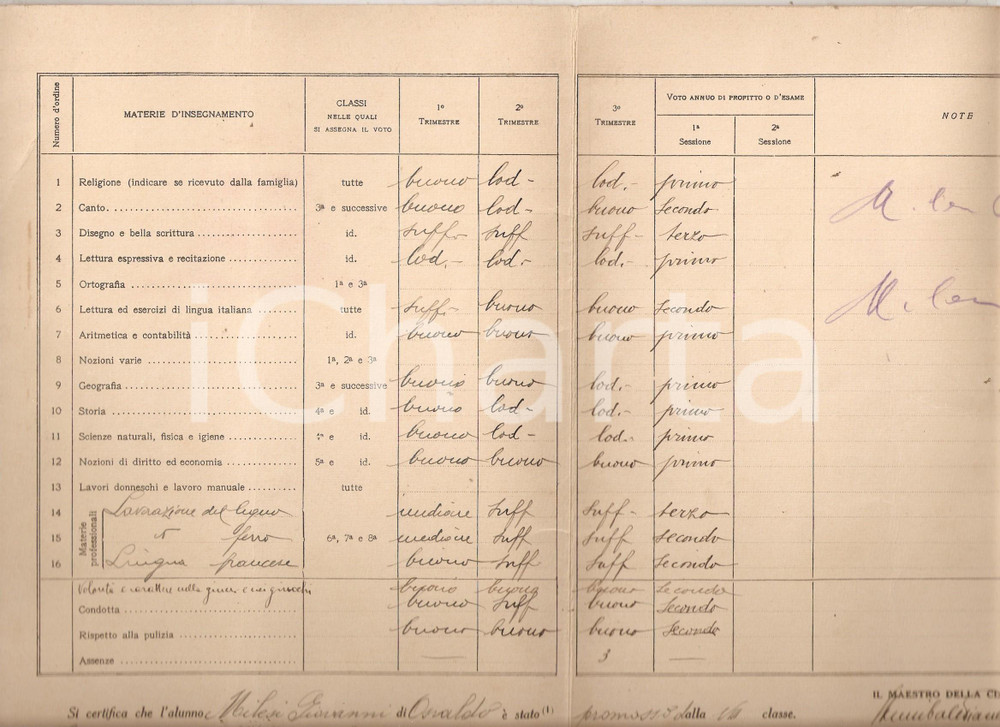 Numero d'ordine | MATERIE D'INSEGNAMENTO | CLASSI NELLE QUALI SI ASSEGNA IL VOTO | 1º TRIMESTRE | 2º TRIMESTRE | 3º TRIMESTRE | VOTO ANNUO DI PROFITTO O D'ESAME | 1ª Sessione | 2ª Sessione | NOTE
1 Religione (indicare se ricevuto dalla famiglia) tutte buono lod- lod.- primo
2 Canto. 3ª e successive buono lod- buono secondo
3 Disegno e bella scrittura id. suff- suff suff- terzo
4 Lettura espressiva e recitazione id. lod.- lod.- lod.- primo
5 Ortografia 1ª e 3ª
6 Lettura ed esercizi di lingua italiana tutte suff- buono buono secondo
7 Aritmetica e contabilità id. buono buono buono primo
8 Nozioni varie 1ª, 2ª e 3ª
9 Geografia 3ª e successive buono buono lod.- primo
10 Storia 4ª e id. buono lod- lod.- primo
11 Scienze naturali, fisica e igiene 4ª e id. buono lod- lod.- primo
12 Nozioni di diritto ed economia 5ª e id. buono buono buono primo
13 Lavori donneschi e lavoro manuale tutte
Materie professionali
14 Lavorazione del legno mediocre suff suff- terzo
15 ferro 6ª, 7ª e 8ª mediocre suff suff secondo
16 Lingua francese buono suff suff secondo
Volontà e carattere nella e nei giuochi buono buono buono secondo
Condotta buono suff buono secondo
Rispetto alla pulizia buono buono buono secondo
Assenze — 3 —
IL MAESTRO DELLA
Si certifica che l'alunno Milesi Giovanni di Osvaldo è stato (1) promosso dalla VII classe.
iCharta